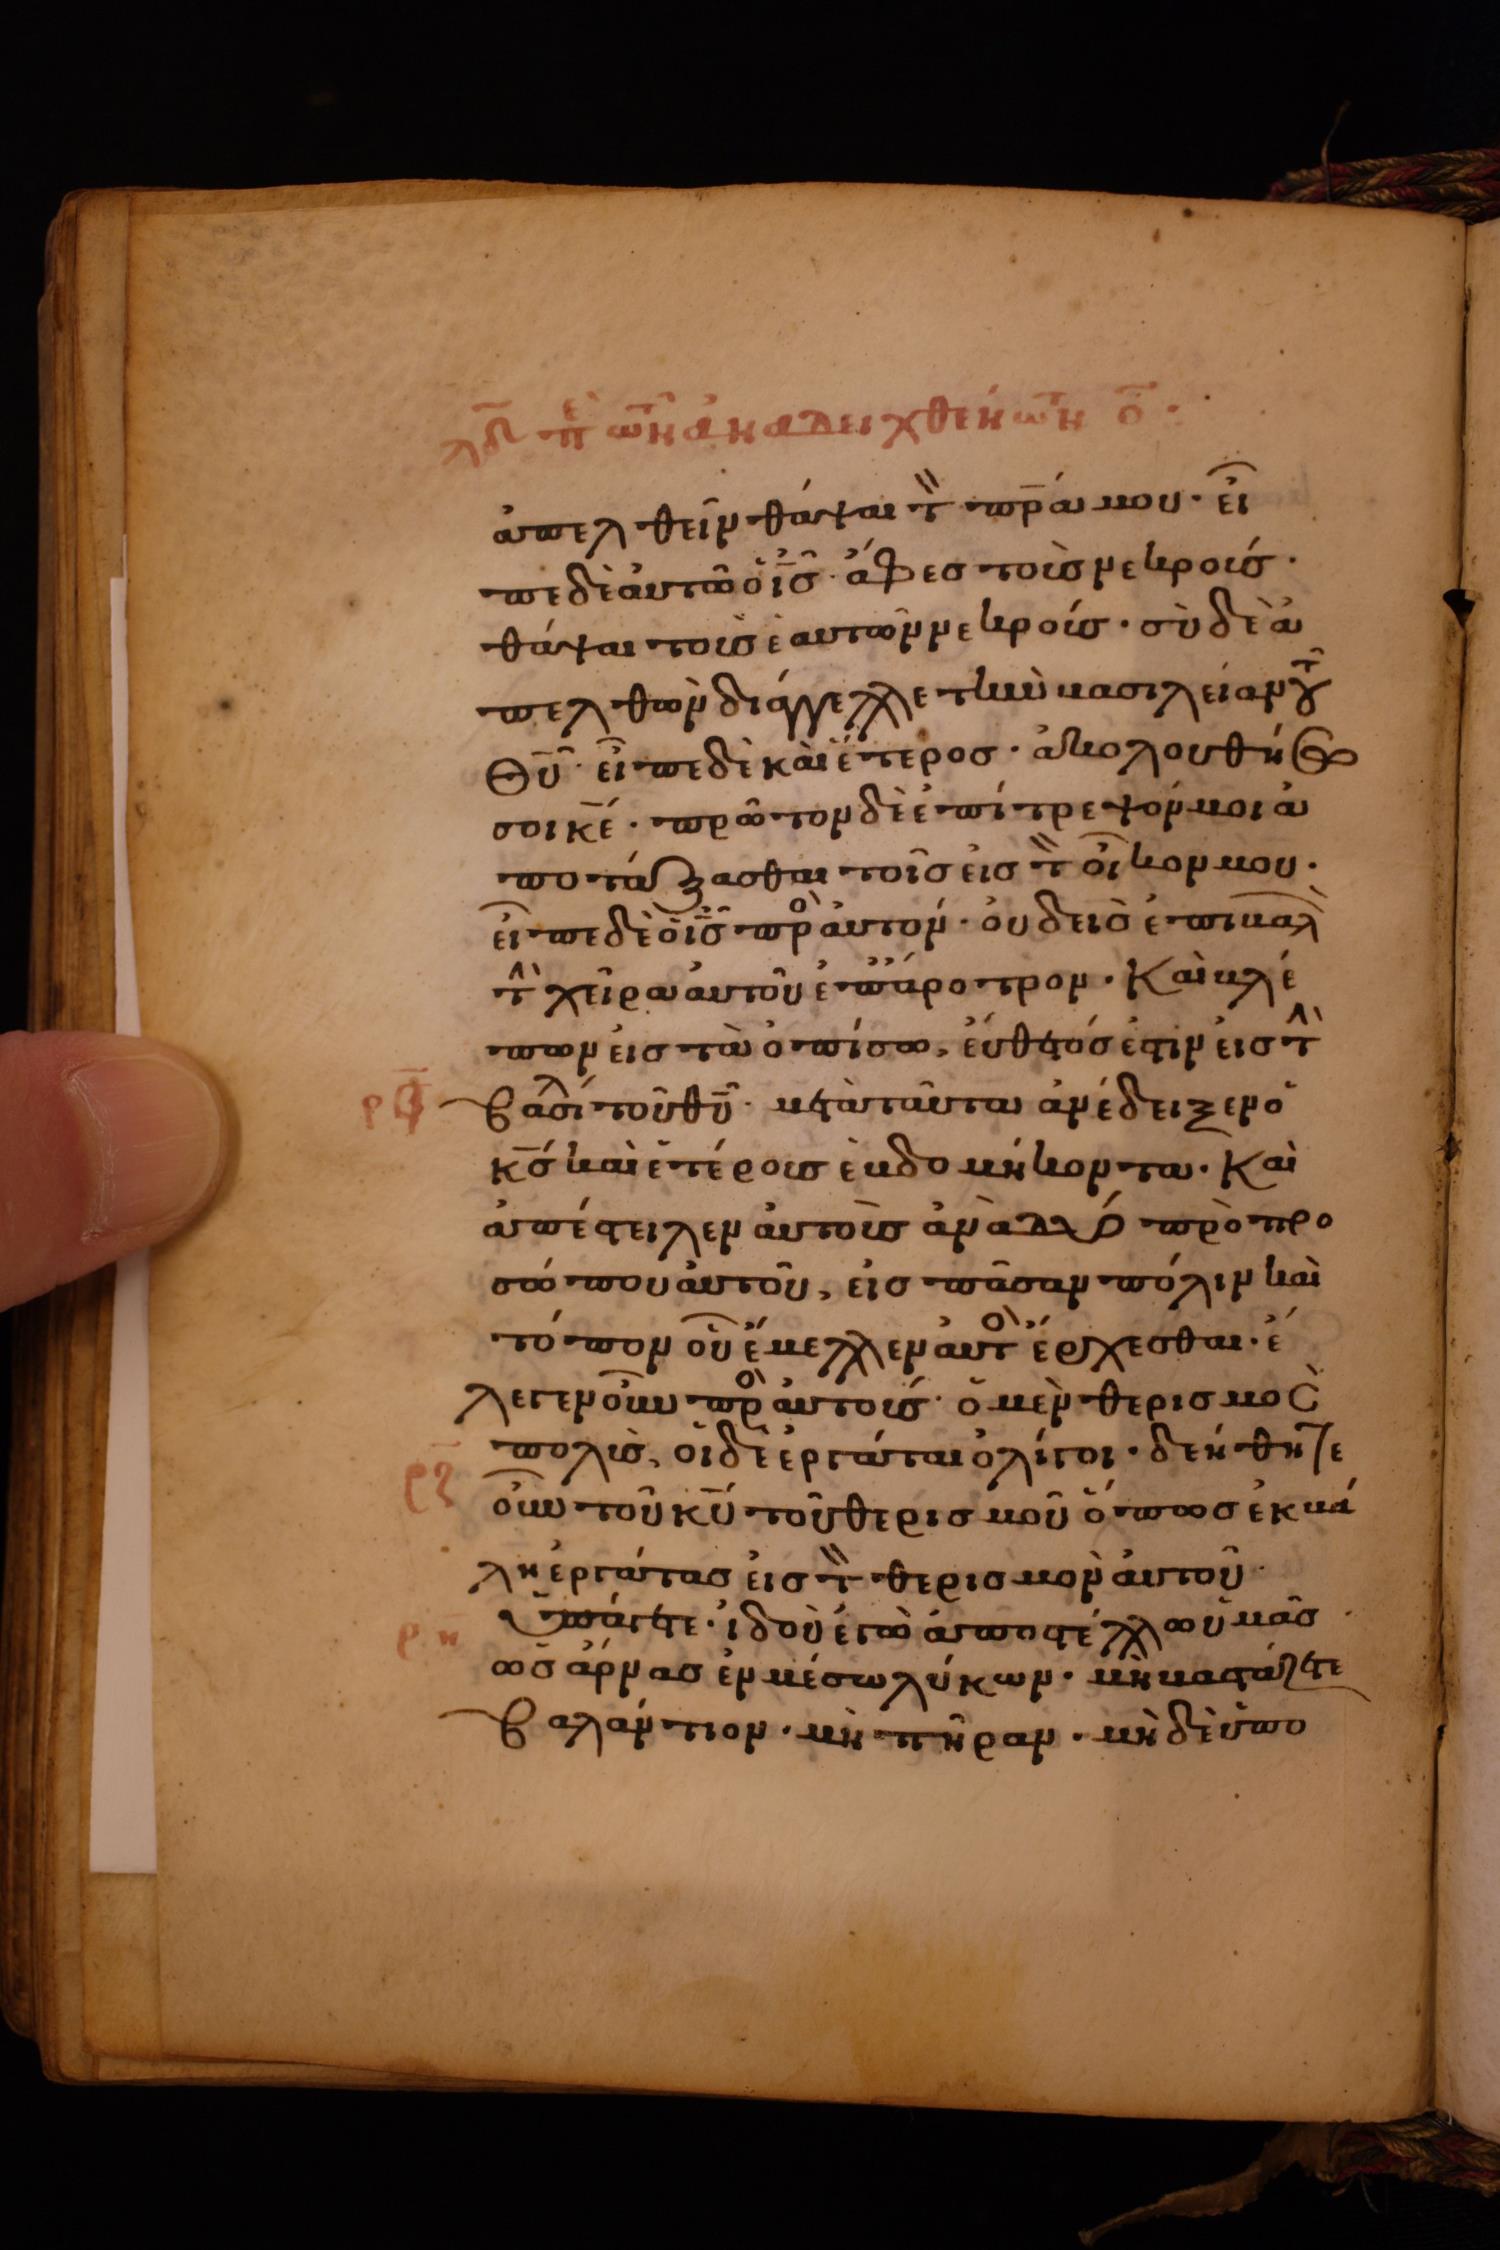 λδ πε τῶν ἀναδειχθέντων ο̄·
ἀπελθεῖν θάψαι τ̀ πρ̅α μου· εἶ
πε δὲ αὐτῶ ὁ ις̅· ἄφες τοὺς νεκρούς·
θάψαι τοὺς ἑαυτῶν νεκρούς· σὺ δὲ ἀ
πελθὼν διάγγελλε τὴν βασιλείαν τοῦ
θυ̅· εἶπε δὲ καὶ ἕτερος· ἀκολουθήσω
σοι κε̅· πρῶτον δὲ ἐπίτρεψόν μοι ἀ
ποτάξασθαι τοῖς εἰς τ̀ οἶκον μου·
εἶπε δὲ ὁ ις̅ πρὸ αὐτόν· οὐδεὶς ἐπιβαλ
τ̀ χεῖρα αὐτοῦ ἐπ' ἄροτρον· καὶ βλέ
πων εἰς τὰ ὀπίσω, εὔθετός ἐστιν εἰς τ̀
ρϛ βασι τοῦ θυ̅· μετὰ ταῦτα ἀνέδειξεν ὁ
κς̅ καὶ ἑτέρους ἑβδομήκοντα· καὶ
ἀπέστειλεν αὐτοὺς ἀνὰ δύο πρὸ προ
σώπου αὐτοῦ, εἰς πᾶσαν πόλιν καὶ
τόπον οὗ ἔμελλεν αὐτὸ ἔρχεσθαι· ἔ
λεγεν οὖν πρὸ αὐτούς· ὁ μὲν θερισμὸς
ρζ πολὺς, οἱ δὲ ἐργάται ὀλίγοι· δεήθητε
οὖν τοῦ κυ̅ τοῦ θερισμοῦ ὅπως ἐκβά
λη ἐργάτας εἰς τ̀ θερισμὸν αὐτοῦ·
ρη ὑπάγετε· ἰδοὺ ἐγὼ ἀποστέλλω ὑμᾶς
ὡς ἄρνας ἐν μέσω λύκων· μὴ βαστάζετε
βαλάντιον· μὴ πήραν· μὴ δὲ ὑπο